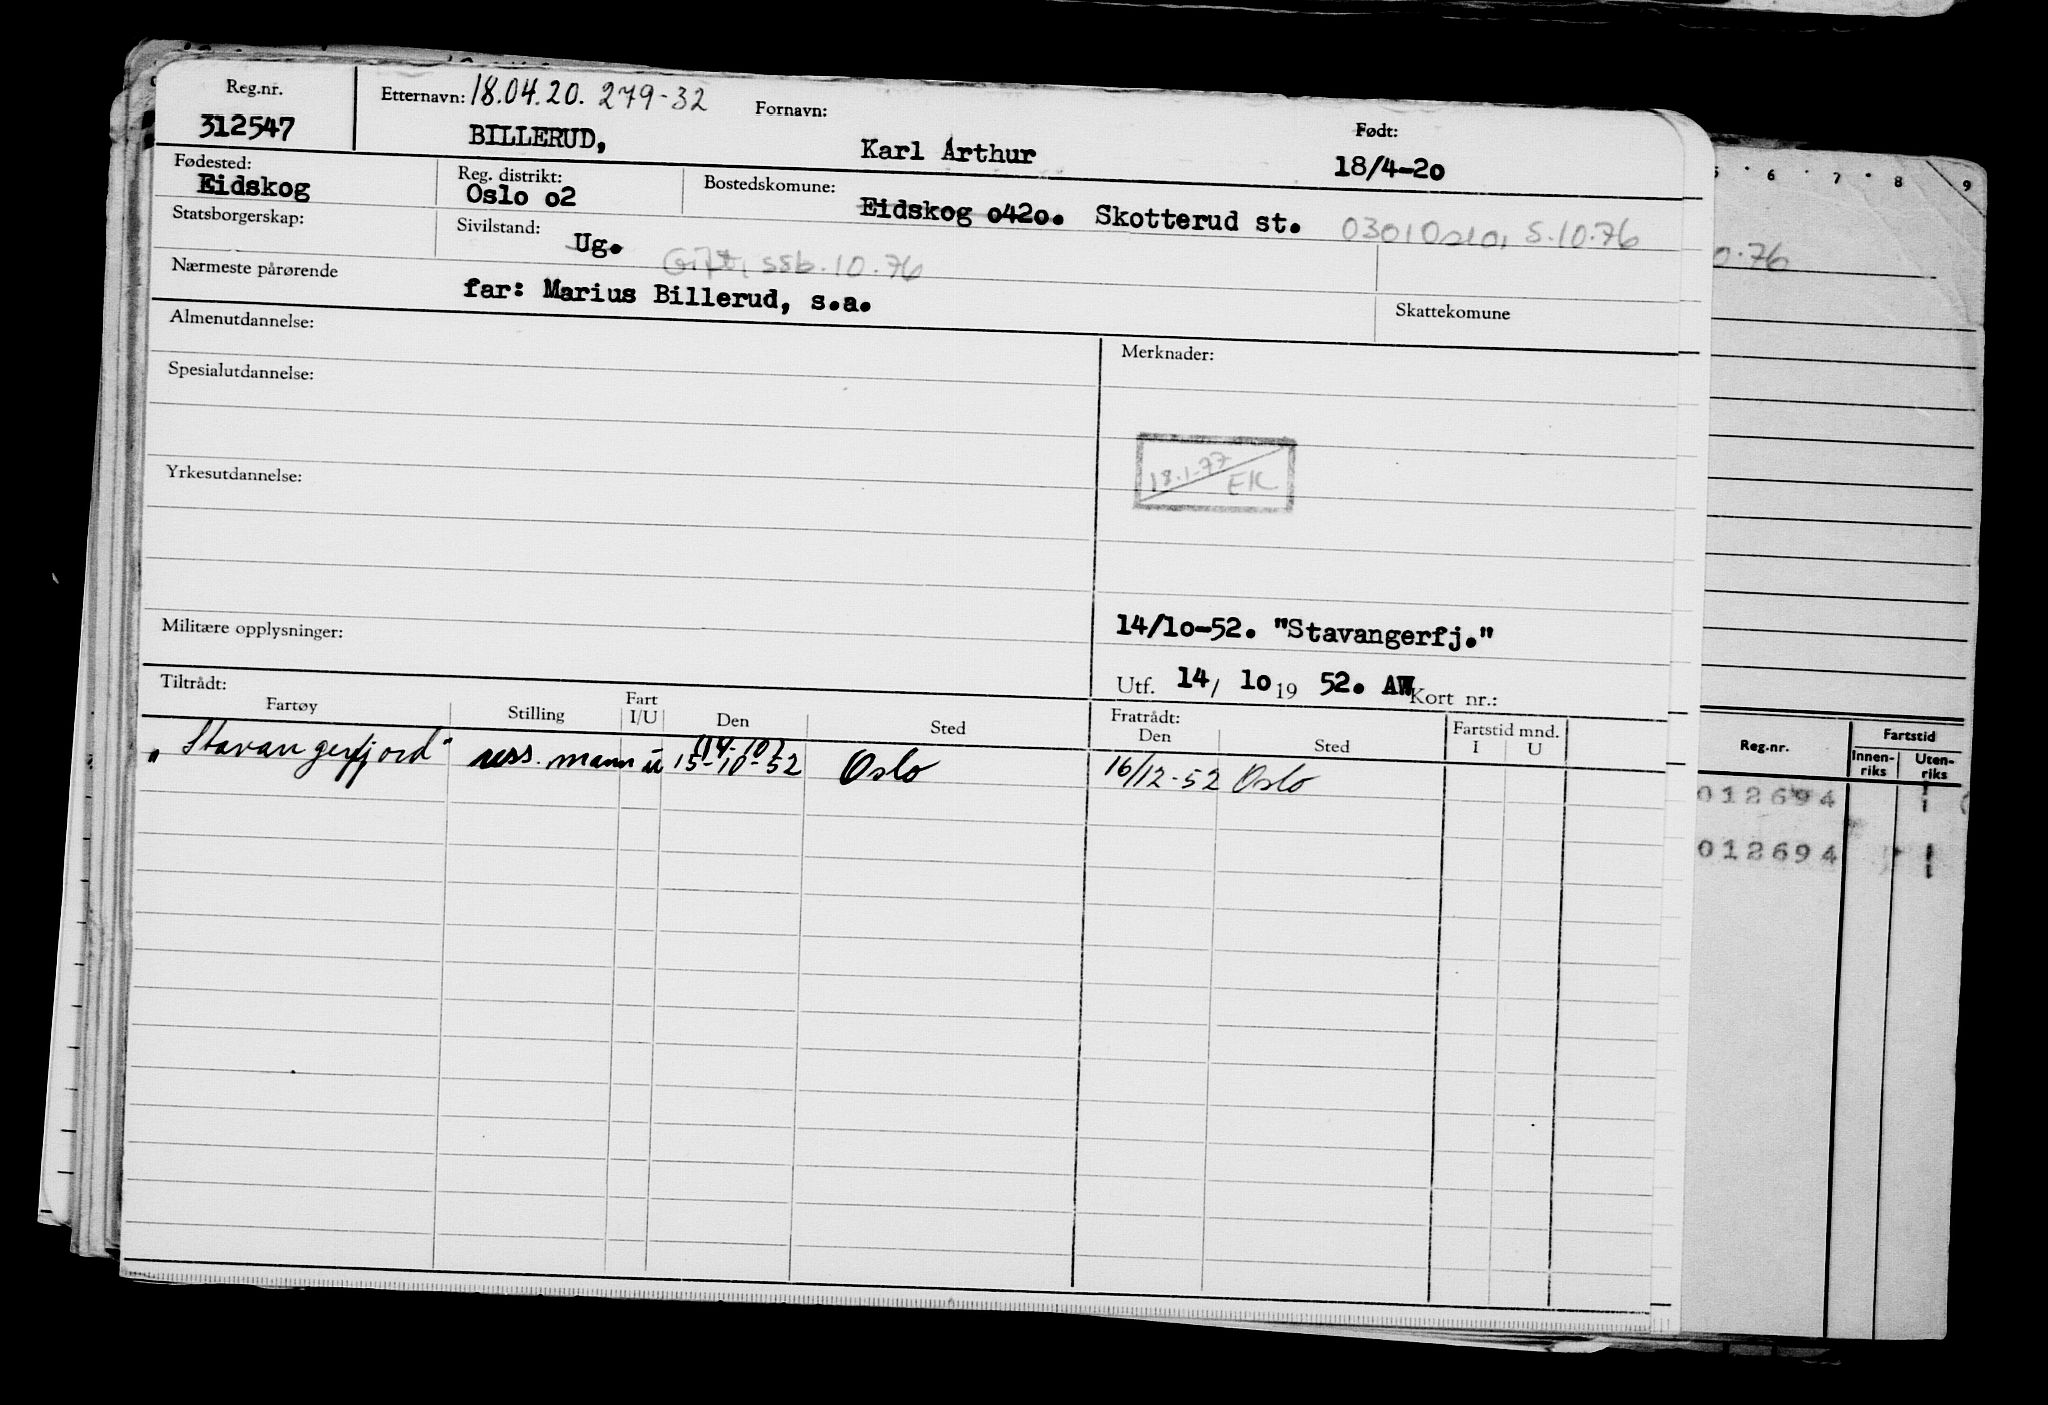 Reg.nr.
312547
Etternavn: 18.04.20. 279-32
BILLERUD,
Fornavn:
Karl Arthur
Født:
18/4-20
Fødested:
Eidskog
Reg. distrikt:
Oslo o2
Bostedskomune:
Eidskog o42o. Skotterud st. 0301 Oslo, S.10.76
Statsborgerskap:
Sivilstand:
Ug. Gift, ssb.10.76
Nærmeste pårørende
far: Marius Billerud, s.a.
Skattekomune
Almenutdannelse:
Merknader:
Spesialutdannelse:
18.1.77
EK
Yrkesutdannelse:
14/1o-52. "Stavangerfj."
Militære opplysninger:
Utf. 14/ 1o 19 52. AW Kort nr.:
Tiltrådt:
Fartøy
Stilling
Fart
I/U
Den
Sted
Fratrådt:
Den
Sted
Fartstid mnd.
I
U
"Stavangerfjord" mann u 15-10-52 Oslo 16/12-52 Oslo
6 7 8 9
0.76
Reg.nr.
Fartstid
Innen-
riks
Uten-
riks
012694 1
012694 1